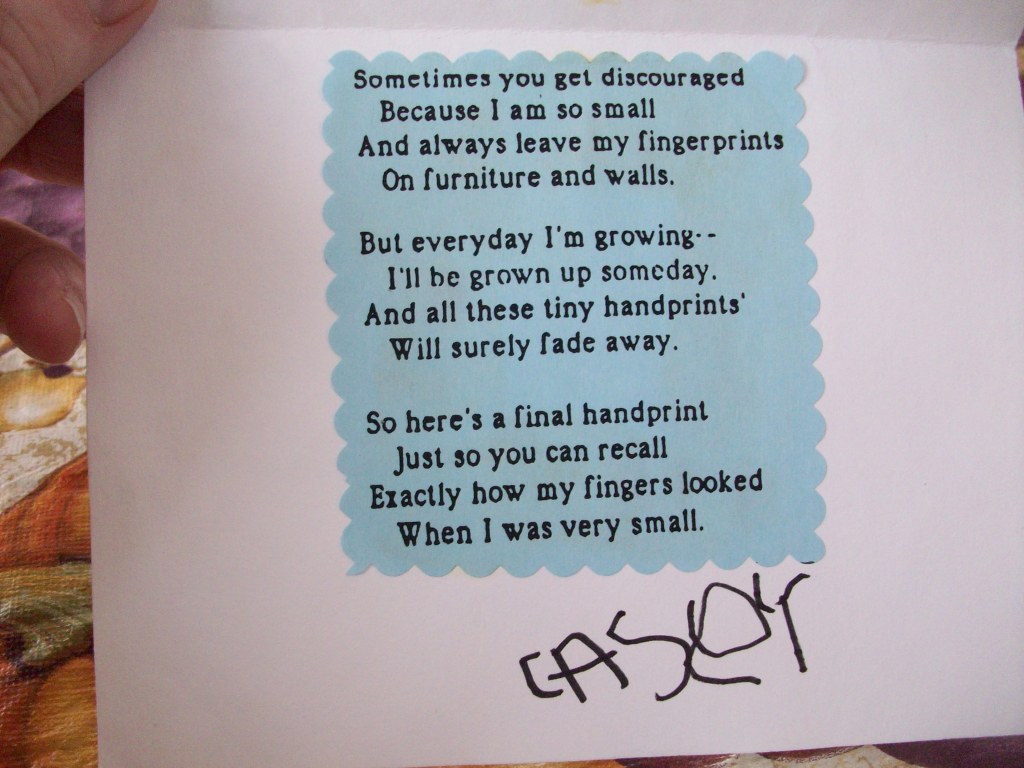 Sometimes you get discouraged
Because I am so small
And always leave my fingerprints
On furniture and walls.
But everyday I'm growing--
I'll be grown up someday.
And all these tiny handprints'
Will surely fade away.
So here's a final handprint
Just so you can recall
Exactly how my fingers looked
When I was very small.
CASEY